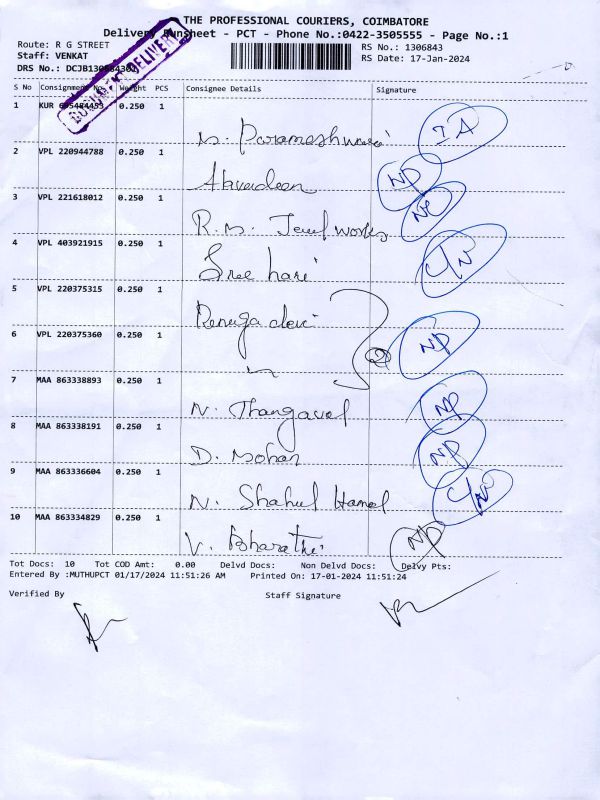 THE PROFESSIONAL COURIERS, COIMBATORE
Delivery Runsheet - PCT - Phone No.:0422-3505555 - Page No.:1
Route: R G STREET
RS No.: 1306843
Staff: VENKAT
RS Date: 17-Jan-2024
DRS No.: DCJB1306843
S No Consignment No. Weight PCS Consignee Details Signature
1 KUR 0.250 1
N. Parameshwari IA
2 VPL 220944788 0.250 1
NP
3 VPL 221618012 0.250 1
R.M. Jewel works
4 VPL 403921915 0.250 1
Sree hari
5 VPL 220375315 0.250 1
Renuga devi
6 VPL 220375360 0.250 1
2 NP
7 MAA 863338893 0.250 1
N. Thangavel NP
8 MAA 863338191 0.250 1
D. Mohan NP
9 MAA 863336604 0.250 1
N. Shahul Hameed
10 MAA 863334829 0.250 1
V. Bharathi NP
Tot Docs: 10 Tot COD Amt: 0.00 Delvd Docs: Non Delvd Docs: Delvy Pts:
Entered By :MUTHUPCT 01/17/2024 11:51:26 AM Printed On: 17-01-2024 11:51:24
Verified By Staff Signature